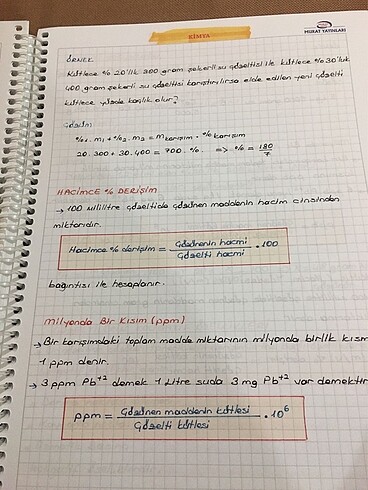 KİMYA
MURAT YAYINLARI
ÖRNEK
Kütlece % 20'lik 300 gram şekerli su çözeltisi ile kütlece % 30'luk
400 gram şekerli su çözeltisi karıştırılırsa elde edilen yeni çözelti
kütlece yüzde kaçlık olur?
Çözüm:
%1 . m1 + %2 . m2 = m karışım . % karışım
20 . 300 + 30 . 400 = 700 . % . => % = 180/7
HACİMCE % DERİŞİM
→ 100 mililitre çözeltide çözünen maddenin hacim cinsinden
miktarıdır.
Hacimce % derişim = Çözünenin hacmi / Çözelti hacmi . 100
bağıntısı ile hesaplanır.
Milyonda Bir Kısım (ppm)
→ Bir karışımdaki toplam madde miktarının milyonda birlik kısm
1 ppm denir.
→ 3 ppm Pb+2 demek 1 Litre suda 3 mg Pb+2 var demektir
ppm = Çözünen maddenin kütlesi / Çözelti kütlesi . 10^6